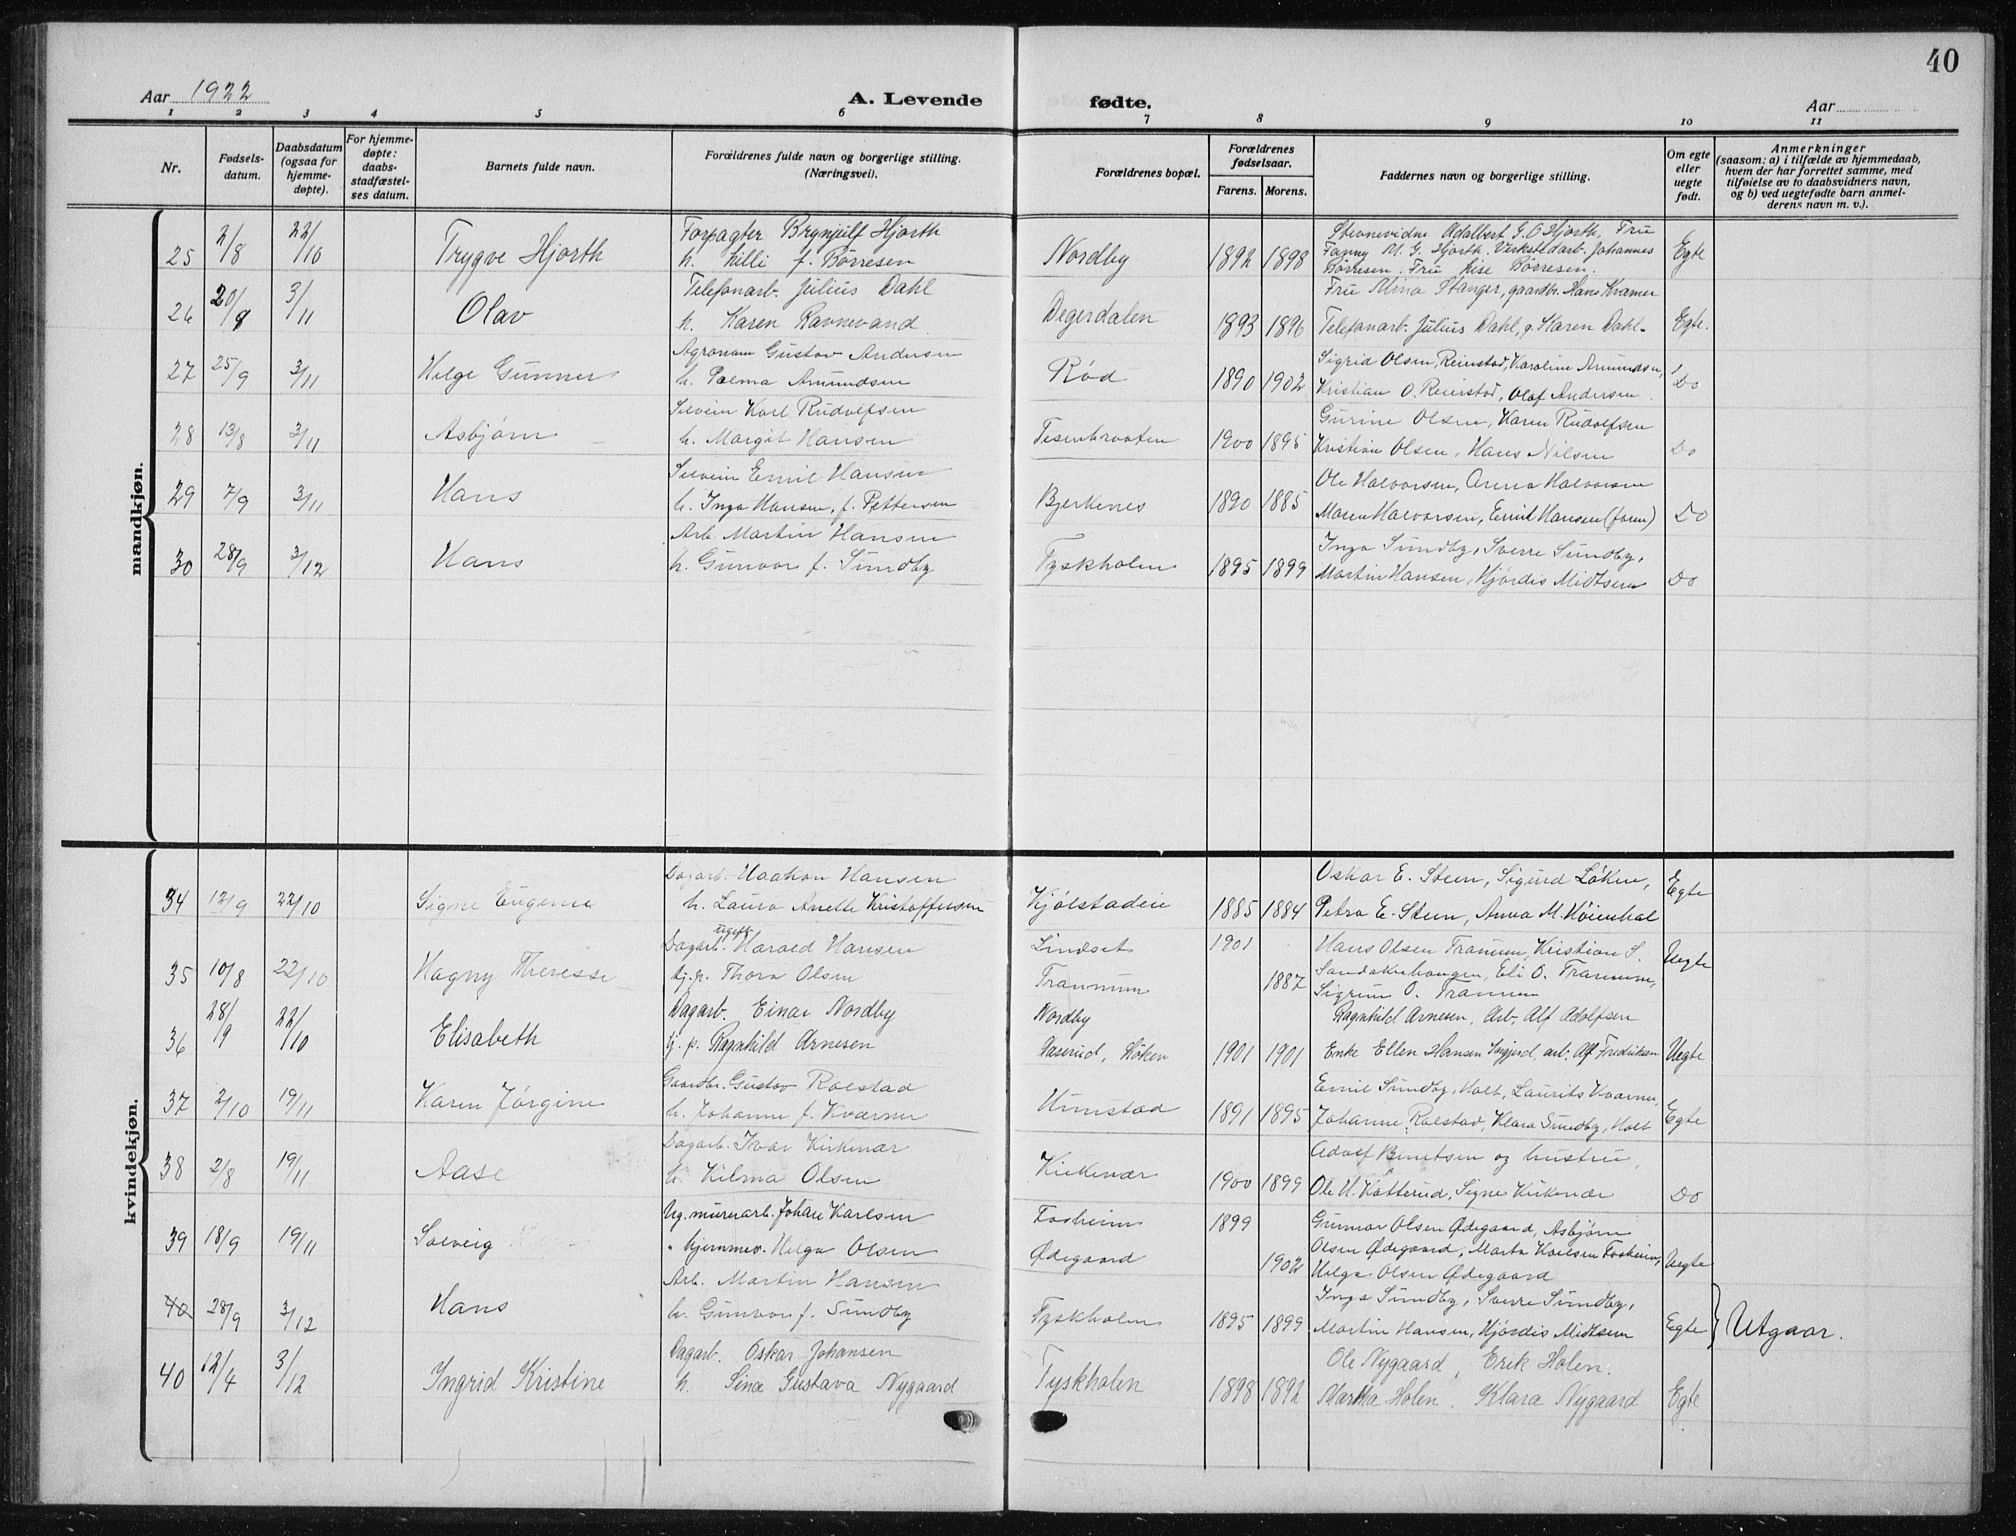 40
Aar 1922
A. Levende
fødte.
Aar
1 2 3 4 5 6 7 8 9 10 11
Nr.
Fødsels-
datum.
Daabsdatum
(ogsaa for
hjemme-
døpte).
For hjemme-
døpte:
daabs-
stadfæstel-
ses datum.
Barnets fulde navn.
Forældrenes fulde navn og borgerlige stilling.
(Næringsvei).
Forældrenes bopæl.
Forældrenes
fødselsaar.
Farens. Morens.
Faddernes navn og borgerlige stilling.
Om egte
eller
uegte
født.
Anmerkninger
(saasom: a) i tilfælde av hjemmedaab,
hvem der har forrettet samme, med
tilføielse av to daabsvidners navn,
og b) ved uegtefødte barn anmel-
derens navn m. v.).
mandkjøn.
Forpagter Brynjulf Hjorth Stevnevidne Adalbert G. O. Hjorth, Fru
25 2/8 22/10 Trygve Hjorth h. Lilli f. Børresen Nordby 1892 1898 Fanny M. G. Hjorth. Verkstedarb. Johannes Egte
Børresen. Fru Lise Børresen.
Telefonarb. Julius Dahl Fru Alma Stanger, gaardbr. Hans Kramer
26 20/8 3/11 Olav h. Karen Ravnevand Degerdalen 1893 1896 Telefonarb. Julius Dahl, Karen Dahl. Egte.
Agronom Gustav Andersen Sigrid Olsen, Reierstad, Karoline Amundsen,
27 25/9 3/11 Helge Gunner h. Palma Amundsen Rød 1890 1902 Kristian O. Reierstad, Olaf Andersen. Do
Karl Rudolfsen Gurine Olsen, Karen Rudolfsen
28 13/8 3/11 Asbjørn h. Margit Hansen Tisenbraaten 1900 1895 Kristian Olsen, Hans Nilsen Do
Emil Hansen Ole Halvorsen, Anna Halvorsen
29 7/9 3/11 Hans h. Inga Hansen, f. Pettersen Bjerkenes 1890 1885 Maren Halvorsen, Emil Hansen (faren) Do
Arb. Martin Hansen Inga Sundby, Sverre Sundby,
30 28/9 3/12 Hans h. Gunvor f. Sundby Tyskholen 1895 1899 Martin Hansen, Hjørdis Midtsem Do
kvindekjøn.
Dagarb. Haakon Hansen Oskar E. Steen, Sigurd Løken,
34 12/9 22/10 Signe Eugenie h. Laura Anette Kristoffersen Kjølstadeie 1885 1884 Petra E. Steen, Anna M. Høienhal Egte
Dagarb. ugift Harald Hansen Lindset 1901 Hans Olsen Tranum, Kristian S.
35 10/8 22/10 Hagny Theresse tj.p. Thora Olsen Trannum 1887 Sandakerhaugen, Eli O. Trannum, Uegte
Sigrun O. Trannum
Dagarb. Einar Nordby Nordby Ragnhild Arnesen, Arb. Alf Adolfsen
36 28/9 22/10 Elisabeth tj. p. Ragnhild Arnesen Haserud, Løken 1901 1901 Enke Ellen Hansen, arb. Alf Fredriksen Uegte
Gaardbr. Gustav Rolstad Emil Sundby, Holt, Laurits Kværner,
37 2/10 19/11 Karen Jørgine h. Johanne f. Kværner Hunstad 1891 1895 Johanne Rolstad, Klara Sundby, Holt Egte
Dagarb. Ivar Kirkenær Adolf Berntsen og hustru,
38 2/8 19/11 Aase h. Hilma Olsen Kirkenær 1900 1899 Ole H. Katterud, Signe Kirkenær Do
Ug. murerarb. Johan Karlsen Fosheim 1899 Gunnar Olsen Ødegaard, Asbjørn
39 18/9 19/11 Solveig " hjemmev. Helga Olsen Ødegaard 1902 Olsen Ødegaard, Marta Karlsen Fosheim, Uegte
Helga Olsen Ødegaard
Arb. Martin Hansen Inga Sundby, Sverre Sundby,
40 28/9 3/12 Hans h. Gunvor f. Sundby Tyskholen 1895 1899 Martin Hansen, Hjørdis Midtsem Egte Utgaar.
Dagarb. Oskar Johansen Ole Nygaard, Erik Holen.
40 12/4 3/12 Ingrid Kristine h. Sina Gustava Nygaard Tyskholen 1898 1892 Martha Holen. Klara Nygaard Egte